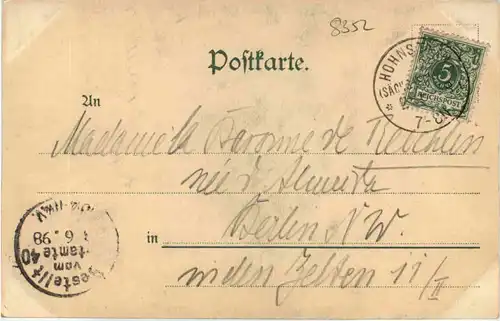 8352
Postkarte.
HOHNS
(SÄCH
7-8
5
REICHSPOST
An
Madame la Baronne de Reichlin
née d'Almeida
Berlin N.W.
in
in den Zelten 11/II
6. 98
Bestellt
vom
Postamte 40